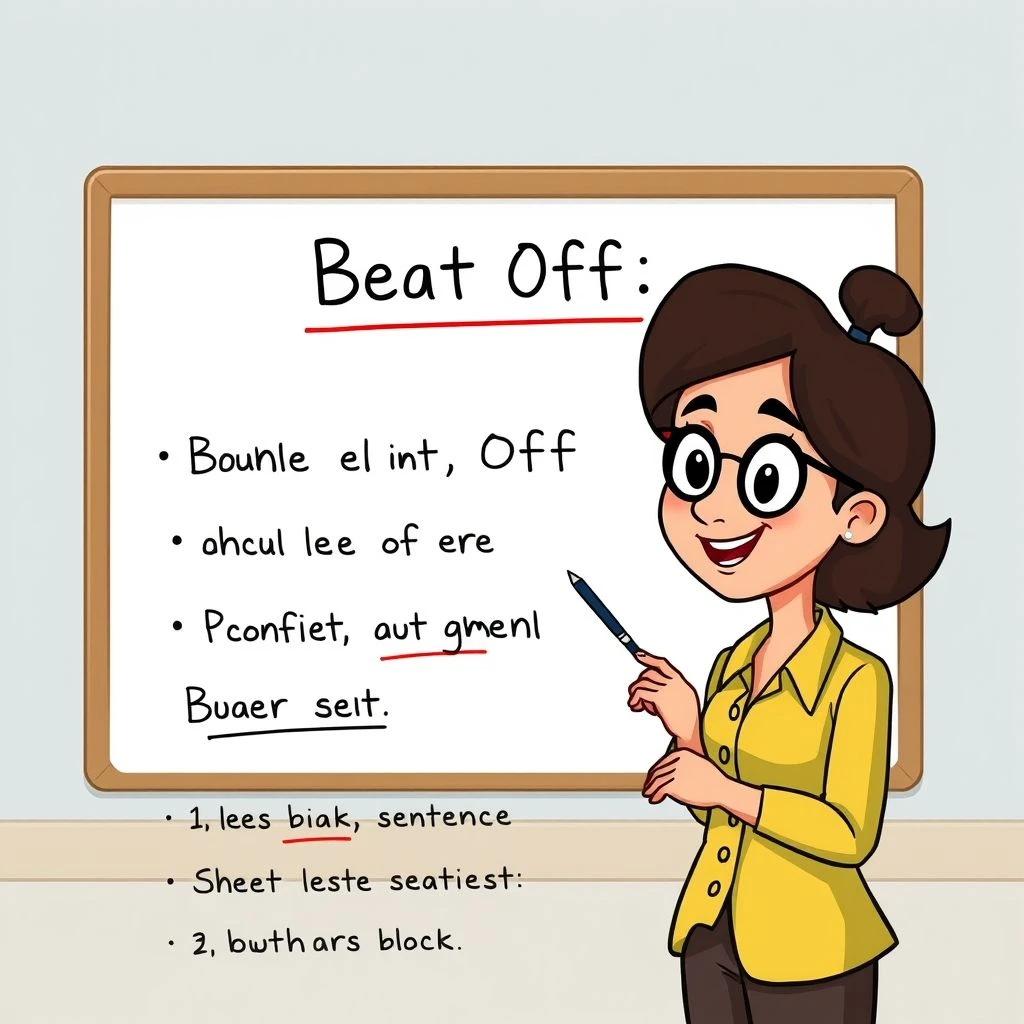 Beat Off:
• Bounle el int, Off
• ohcul lee of ere
• Pconfiet, aut gmenl
Buaer seit.
• 1, lees biak, sentence
• Sheet leste seatiest:
• 2, bwthars block.